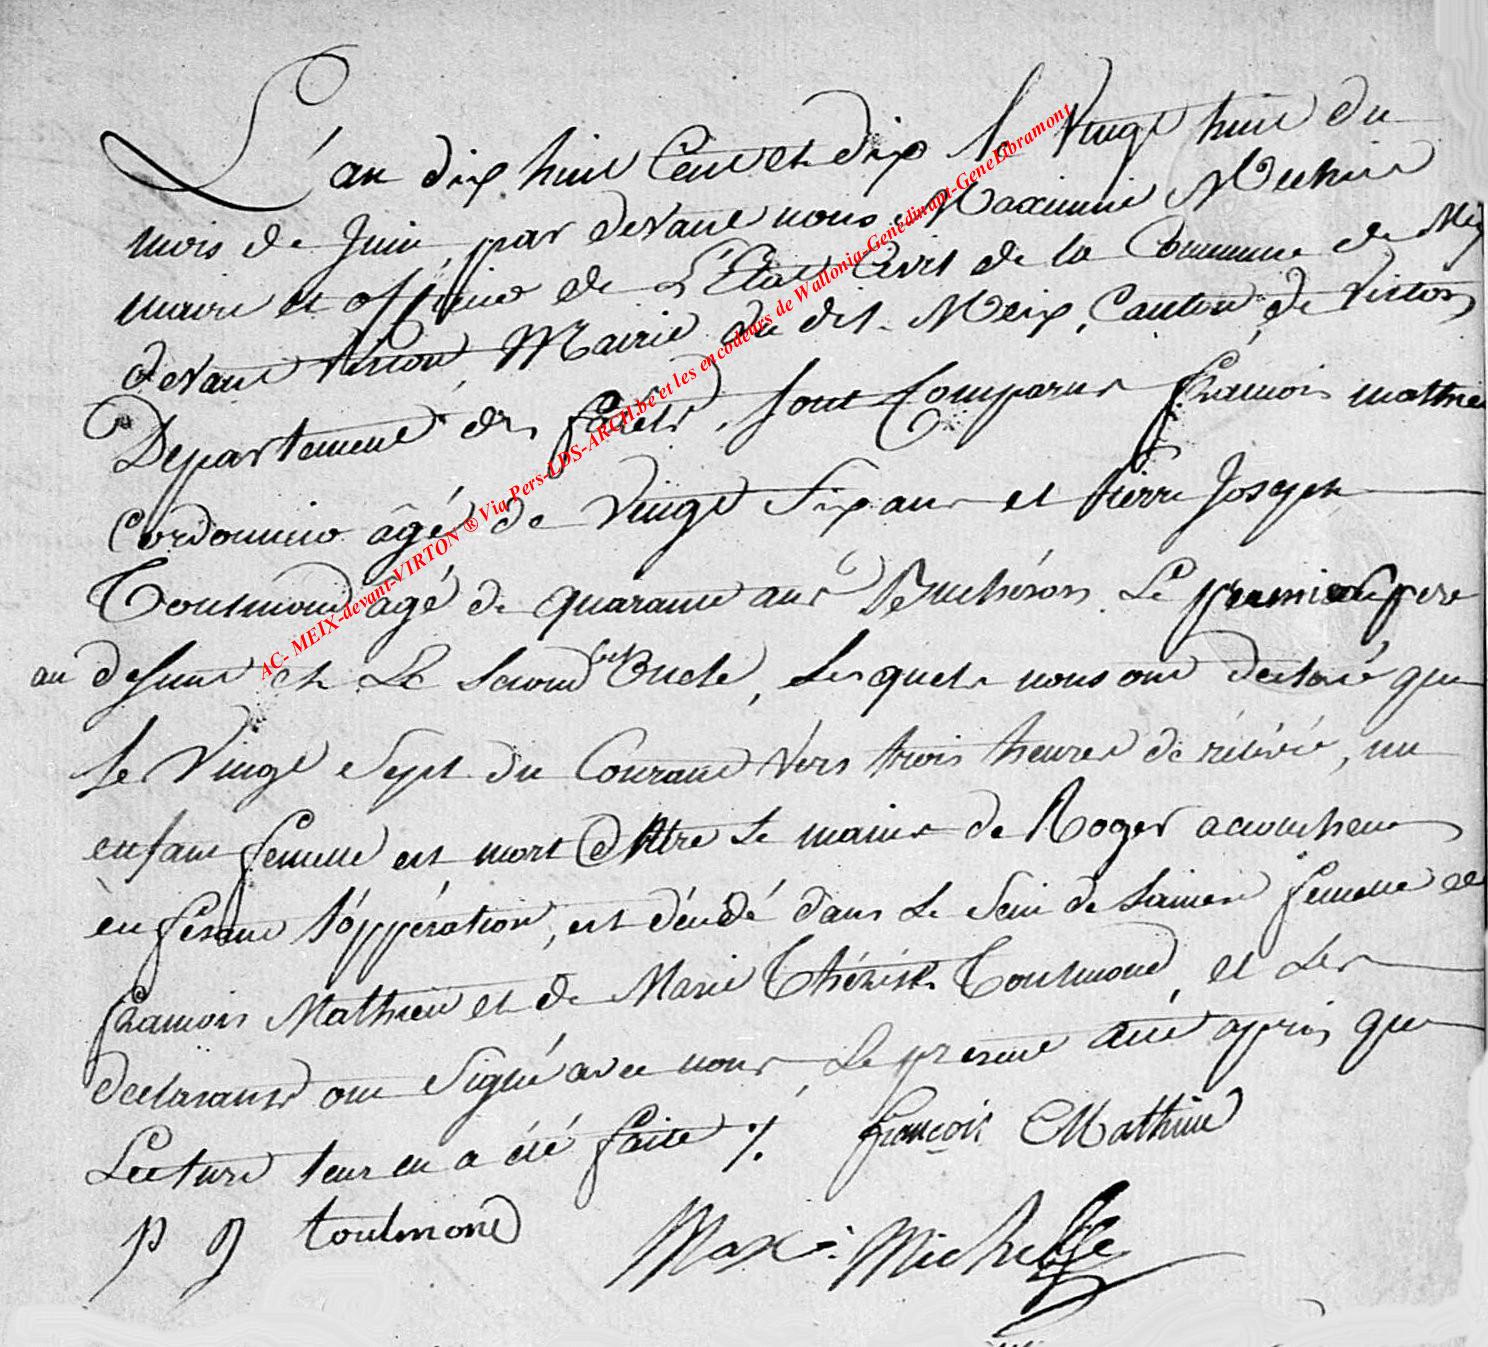 L'an dix huit Cent et dix le Vingt huit du
mois de Juin, par devant nous Maximin Michel
maire et officier de L'Etat Civil de la Commune de Meix
devant Virton Mairie du dit Meix, Canton de Virton
Departement des forêts, sont Comparus françois mathieu
Cordonnier âgé de Vingt Six ans et Pierre Joseph
Toulmond âgé de quarante ans Bucheron Le premier pere
au defunt et Le Second Oncle, Lesquels nous ont déclaré que
le Vingt Sept du Courant Vers trois heures de rélévé, un
enfant femelle est mort entre le mains de Roger acoucheur
en fesant l'oppération, est décédé dans le Sein de femelle de
françois Mathieu et de Marie Thérèse Toulmond, et Les
declarants ont Signé avec nous Le present acte après que
Lecture leur en a été faite %. françois Mathieu
P J toulmond Max: Michel
AC- MEIX-devant-VIRTON ® Via Pers-LDS-ARCH.be et les encodeurs de Wallonia-Genedinant-GeneLibramont